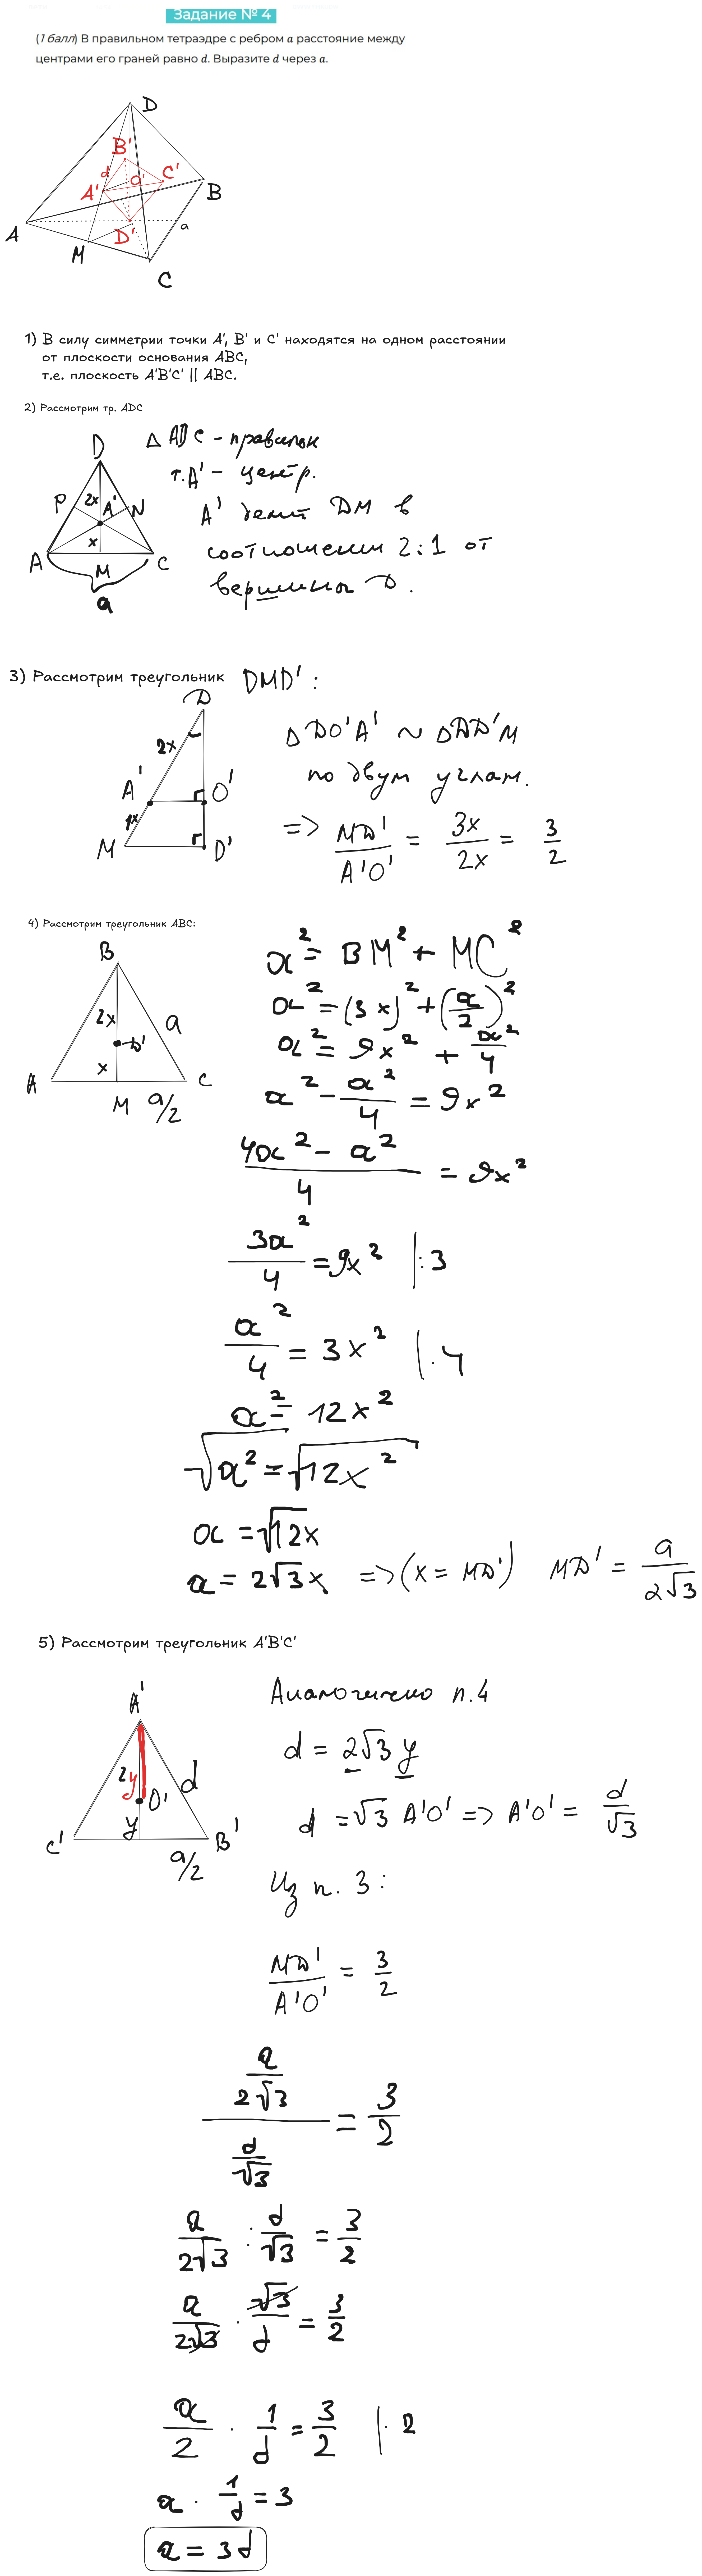 Задание № 4
(1 балл) В правильном тетраэдре с ребром a расстояние между
центрами его граней равно d. Выразите d через a.
D
B'
d
O'
C'
A'
B
A
a
D'
M
C
1) В силу симметрии точки A', B' и C' находятся на одном расстоянии
от плоскости основания ABC,
т.е. плоскость A'B'C' || ABC.
2) Рассмотрим тр. ADC
D
P 2x A' N
x
A M C
a
△ ADC - правильн
т. A' - центр.
A' делит DM в
соотношении 2:1 от
вершины D.
3) Рассмотрим треугольник DMD':
D
2x
A' O'
1x
M D'
△ DO'A' ~ △DD'M
по двум углам.
=> MD'/A'O' = 3x/2x = 3/2
4) Рассмотрим треугольник ABC:
B
2x a
D'
x
A M a/2 C
a² = BM² + MC²
a² = (3x)² + (a/2)²
a² = 9x² + a²/4
a² - a²/4 = 9x²
(4a² - a²)/4 = 9x²
3a²/4 = 9x² |:3
a²/4 = 3x² |·4
a² = 12x²
√a² = √12x²
a = √12x
a = 2√3x => (x = MD') MD' = a/2√3
5) Рассмотрим треугольник A'B'C'
A'
2y d
O'
y
C' a/2 B'
Аналогично п.4
d = 2√3 y
d = √3 A'O' => A'O' = d/√3
Из п. 3:
MD'/A'O' = 3/2
(a/2√3)/(d/√3) = 3/2
a/2√3 : d/√3 = 3/2
a/2√3 · √3/d = 3/2
a/2 · 1/d = 3/2 |· 2
a · 1/d = 3
a = 3d